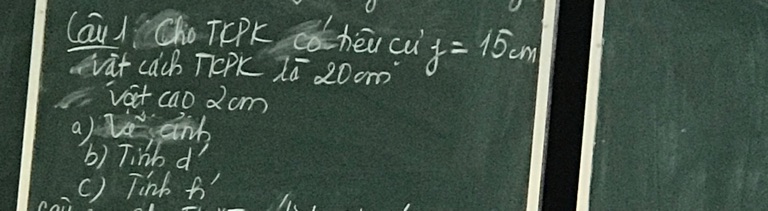 Câu 1. Cho TKPK có tiêu cự f = 15cm
vật cách TKPK là 20cm
vật cao 2cm
a) Vẽ ảnh
b) Tính d'
c) Tính h'